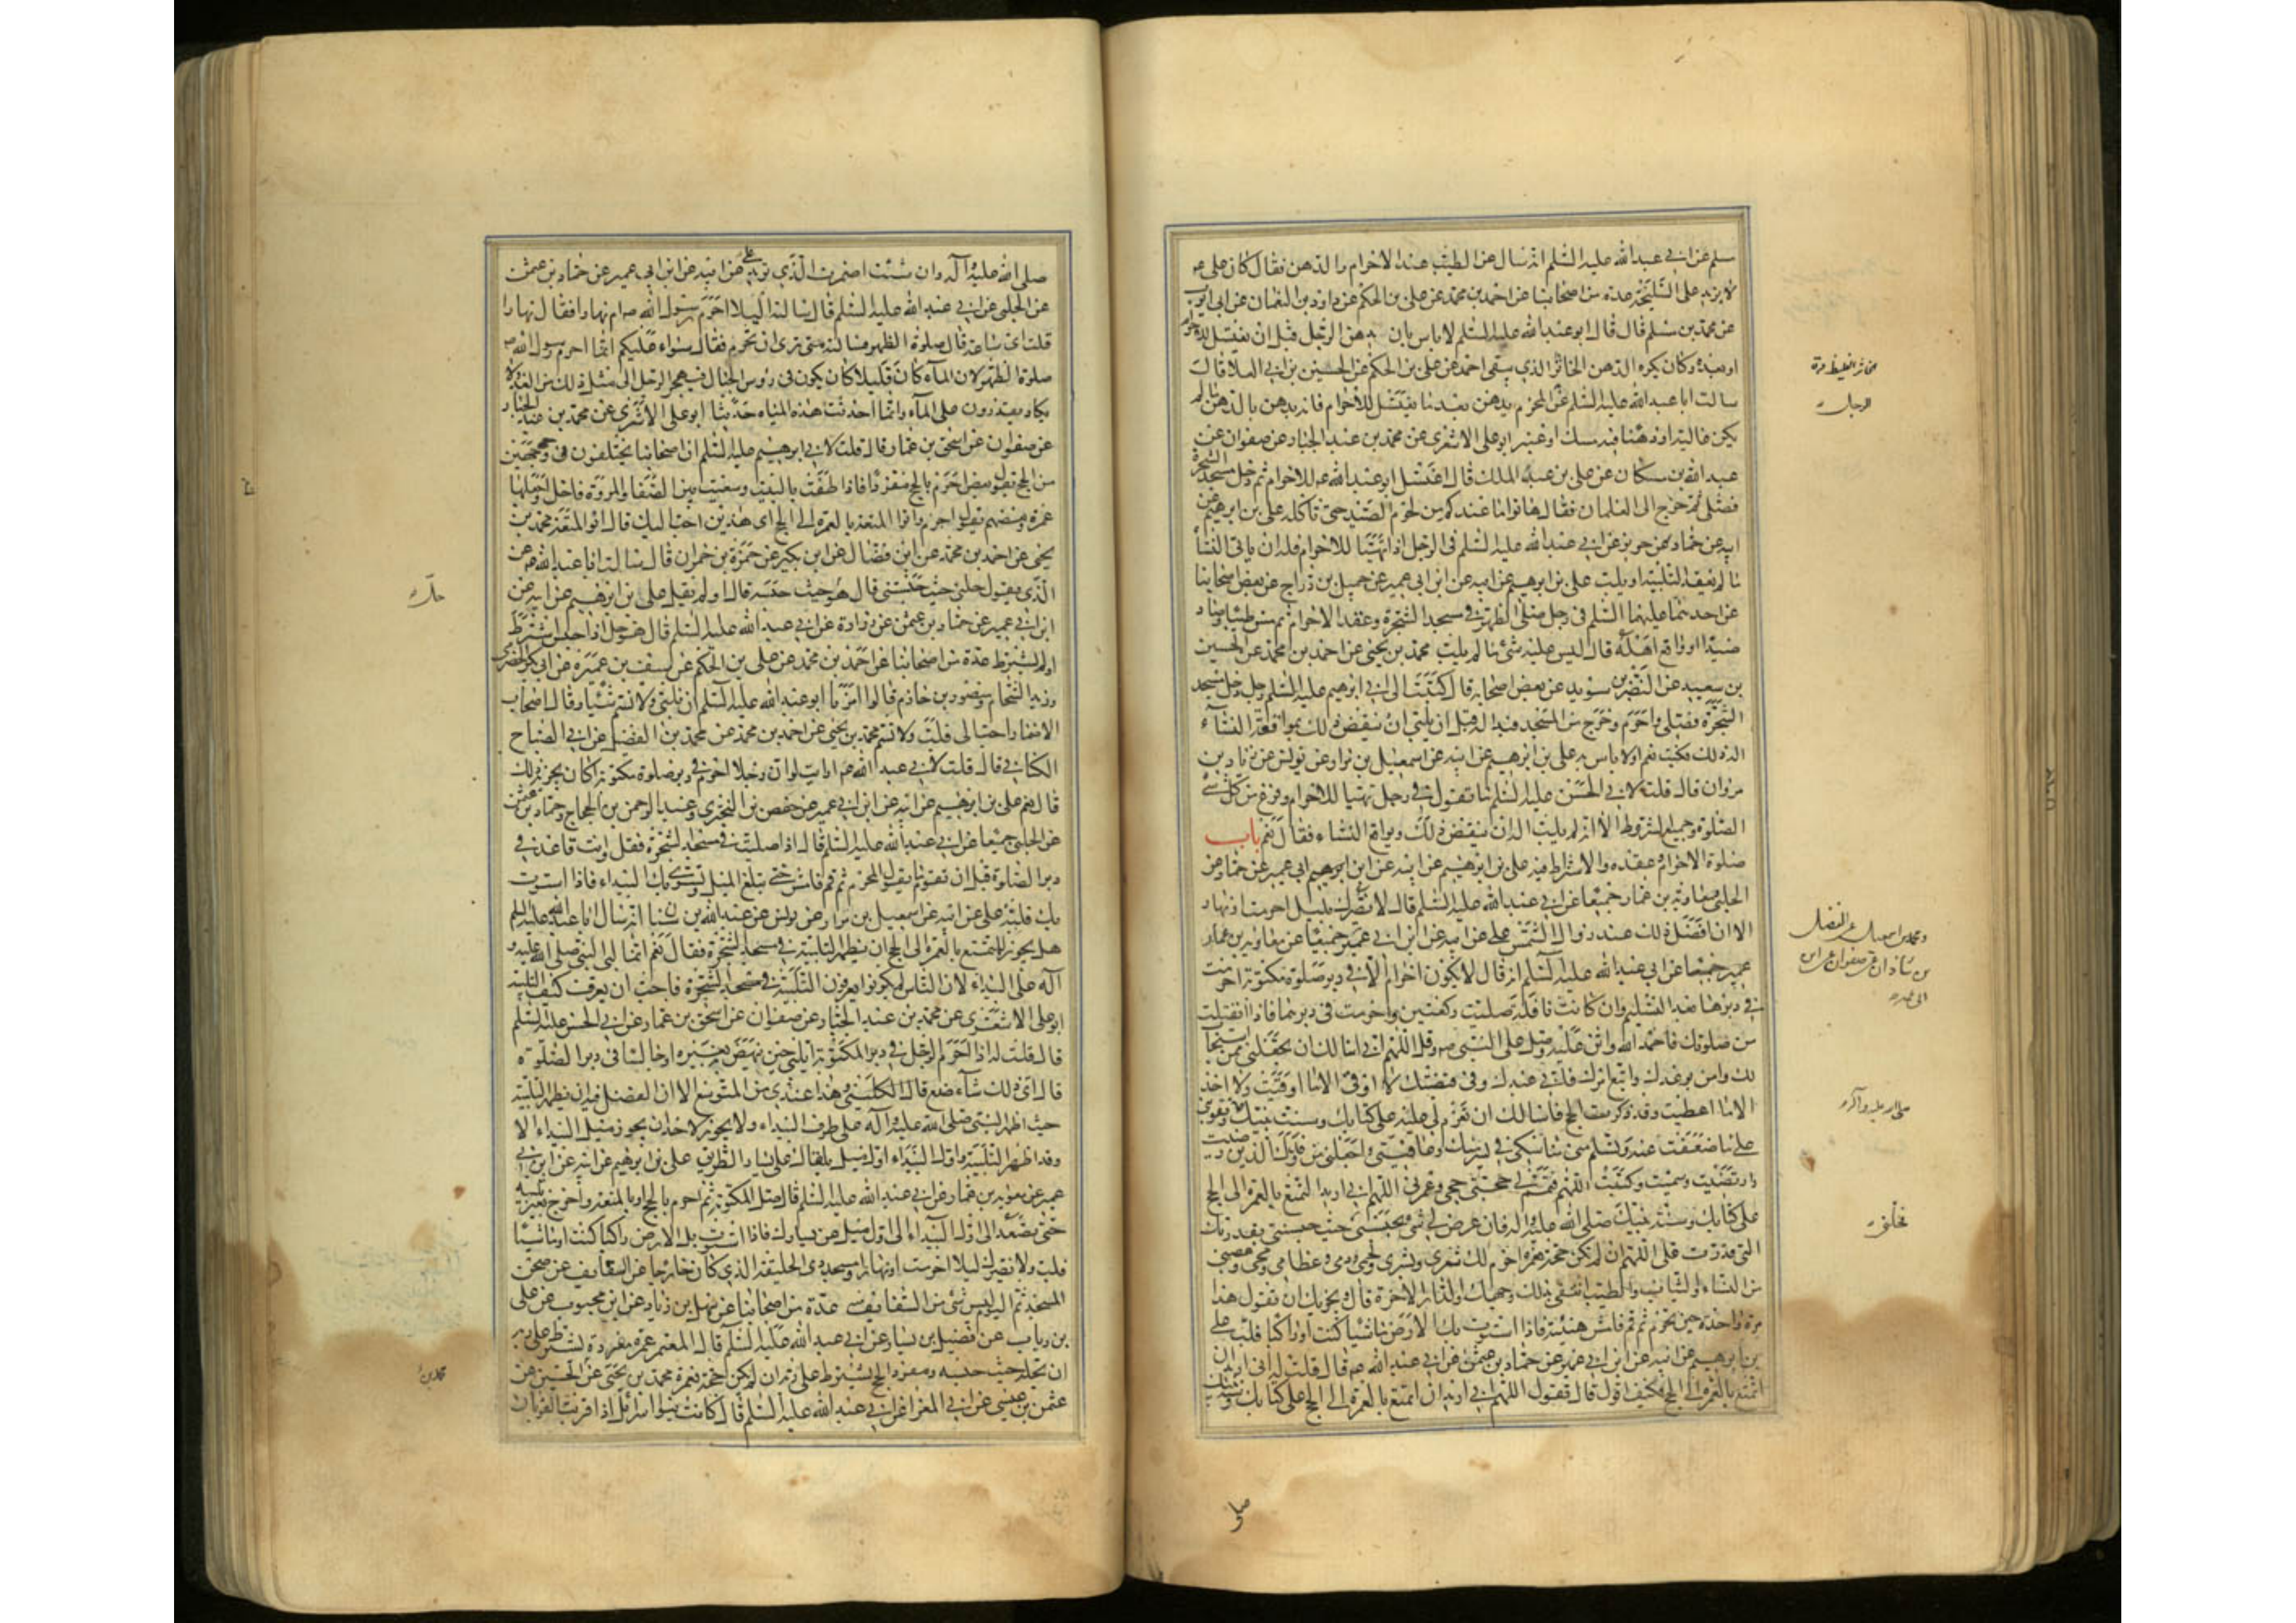 سلم عن ابي عبد الله عليه السلم انه سال عن الطيب عند الاحرام والدهن فقال كان علي ع
لا يزيد على السليخة عدة من اصحابنا عن احمد بن محمد عن علي بن الحكم عن داود بن النعمان عن ابي ايوب
عن محمد بن مسلم قال قال ابو عبد الله عليه السلم لا باس بان يدهن الرجل قبل ان يغتسل للاحرام
او بعده وكان يكره الدهن الخاثر الذي يبقى احمد عن علي بن الحكم عن الحسين بن ابي العلا قال
سالت ابا عبد الله عليه السلم عن المحرم يدهن بعد ما يغتسل للاحرام
عبد الله بن مسكان عن علي بن عبد الملك قال اغتسل ابو عبد الله ع للاحرام ثم دخل مسجد الشجرة
فصلى ثم خرج الى الغلمان فقال هاتوا ما عندكم من لحوم الصيد حتى ناكله علي بن ابرهيم عن
ابيه عن حماد عن حريز عن ابي عبد الله عليه السلم في الرجل اذا تهيا للاحرام فله ان ياتي النساء
ما لم يعقد التلبية او يلب علي بن ابرهيم عن ابيه عن ابن ابي عمير عن جميل بن دراج عن بعض اصحابنا
عن احدهما عليهما السلم في رجل صلى الظهر في مسجد الشجرة وعقد الاحرام ثم مس طيبا او صاد
صيدا او واقع اهله قال ليس عليه شئ ما لم يلب محمد بن يحيى عن احمد بن محمد عن الحسين
بن سعيد عن النضر بن سويد عن بعض اصحابه قال كتبت الى ابي ابرهيم عليه السلم رجل دخل مسجد
الشجرة فصلى واحرم وخرج من المسجد فبدا له قبل ان يلبي ان ينقض ذلك بمواقعة النساء
اله ذلك فكتب نعم او لا باس به علي بن ابرهيم عن ابيه عن اسمعيل بن مرار عن يونس عن زياد بن
مروان قال قلت لابي الحسن عليه السلم ما تقول في رجل تهيا للاحرام وفرغ من كل شئ
الصلوة وجميع الشروط الا انه لم يلب اله ان ينقض ذلك ويواقع النساء فقال نعم باب
صلوة الاحرام وعقده والاشتراط فيه علي بن ابرهيم عن ابيه عن ابن ابي عمير عن حماد عن
الحلبي ومعاوية بن عمار جميعا عن ابي عبد الله عليه السلم قال لا يضرك بليل احرمت او نهار
الا ان افضل ذلك عند زوال الشمس علي عن ابيه عن ابن ابي عمير جميعا عن معاوية بن عمار
عن ابي عبد الله عليه السلم انه قال لا يكون احرام الا في دبر صلوة مكتوبة احرمت
في دبرها بعد التسليم وان كانت نافلة صليت ركعتين واحرمت في دبرهما فاذا انفتلت
من صلوتك فاحمد الله واثن عليه وصل على النبي ص وقل اللهم اني اسالك ان تجعلني ممن استجاب
لك وامن بوعدك واتبع امرك فاني عبدك وفي قبضتك لا اوقى الا ما وقيت ولا اخذ
الا ما اعطيت وقد ذكرت الحج فاسالك ان تعزم لي عليه على كتابك وسنة نبيك
على ما ضعفت عنه وتسلم مني مناسكي في يسر منك وعافية واجعلني من وفدك الذين رضيت
وارتضيت وسميت وكتبت اللهم فتمم لي حجتي وعمرتي اللهم اني اريد التمتع بالعمرة الى الحج
على كتابك وسنة نبيك صلى الله عليه واله فان عرض لي شئ يحبسني حيث حبستني بقدرك
التي قدرت علي اللهم ان لم تكن حجة فعمرة احرم لك شعري وبشري ولحمي ودمي وعظامي ومخي وعصبي
من النساء والثياب والطيب ابتغي بذلك وجهك والدار الاخرة قال ويجزيك ان تقول هذا
مرة واحدة حين تحرم ثم قم فامش هنيئة فاذا استوت بك الارض ماشيا كنت او راكبا فلب علي
بن ابرهيم عن ابيه عن ابن ابي عمير عن حماد بن عثمن عن ابي عبد الله ع قال قلت له اني اريد ان
اتمتع بالعمرة الى الحج فكيف اقول قال تقول اللهم اني اريد ان اتمتع بالعمرة الى الحج على كتابك وسنة نبيك
الرجل
صلى الله عليه وآله
صلى
صلى الله عليه وآله وان شئت اضمرت الذي تريد علي عن ابيه عن ابن ابي عمير عن حماد بن عثمن
عن الحلبي عن ابي عبد الله عليه السلم قال سالته اليلا احرم رسول الله ص ام نهارا فقال نهارا
قلت اي ساعة قال صلوة الظهر فسالته متى ترى ان نحرم فقال سواء عليكم انما احرم رسول الله ص
صلوة الظهر لان الماء كان قليلا كان يكون في رؤوس الجبال فيهجر الرجل الى مثل ذلك من الغد ولا
يكاد يقدرون على الماء وانما احدثت هذه المياه حديثا ابو علي الاشعري عن محمد بن عبد الجبار
عن صفوان عن اسحق بن عمار قال قلت لابي ابرهيم عليه السلم ان اصحابنا يختلفون في وجهين
من الحج يقول بعض احرم بالحج مفردا فاذا طفت بالبيت وسعيت بين الصفا والمروة فاحل واجعلها
عمرة وبعضهم يقول احرم وانو المتعة بالعمرة الى الحج اي هذين احب اليك قال انو المتعة محمد بن
يحيى عن احمد بن محمد عن ابن فضال عن ابن بكير عن حمزة بن حمران قال سالت ابا عبد الله ع عن
الذي يقول حلني حيث حبستني قال هو حيث حبسه قال او لم يقل علي بن ابرهيم عن ابيه عن
ابن ابي عمير عن حماد بن عثمن عن زرارة عن ابي عبد الله عليه السلم قال هو حل اذا حبس اشترط
او لم يشترط عدة من اصحابنا عن احمد بن محمد عن علي بن الحكم عن سيف بن عميرة عن ابي بكر الحضرمي
وزيد الشحام ومنصور بن حازم قالوا امرنا ابو عبد الله عليه السلم ان نلبي ولا نسم شيئا وقال اصحاب
الاضمار احب الي فلب ولا تسم محمد بن يحيى عن احمد بن محمد عن محمد بن الفضيل عن ابي الصباح
الكناني قال قلت لابي عبد الله ع ارايت لو ان رجلا احرم في دبر صلوة مكتوبة اكان يجزيه ذلك
قال نعم علي بن ابرهيم عن ابيه عن ابن ابي عمير عن حفص بن البختري وعبد الرحمن بن الحجاج وحماد بن عثمن
عن الحلبي جميعا عن ابي عبد الله عليه السلم قال اذا صليت في مسجد الشجرة فقل وانت قاعد في
دبر الصلوة قبل ان تقوم ما يقول المحرم ثم قم فامش حتى تبلغ الميل وتستوي بك البيداء فاذا استوت
بك فلبه علي عن ابيه عن اسمعيل بن مرار عن يونس عن عبد الله بن سنان انه سال ابا عبد الله عليه السلم
هل يجوز للمتمتع بالعمرة الى الحج ان يظهر التلبية في مسجد الشجرة فقال نعم انما لبى النبي صلى الله عليه و
آله على البيداء لان الناس لم يكونوا يعرفون التلبية في مسجد الشجرة فاحب ان يعرف كيف التلبية
ابو علي الاشعري عن محمد بن عبد الجبار عن صفوان عن اسحق بن عمار عن ابي الحسن عليه السلم
قال قلت له اذا احرم الرجل في دبر المكتوبة ايلبي حين ينهض به بعيره او جالسا في دبر الصلوة
قال اي ذلك شاء صنع قال الكليني وهذا عندي من المتوسع الا ان الفضل فيه ان يظهر التلبية
حيث اظهر النبي صلى الله عليه وآله على طرف البيداء ولا يجوز لاحد ان يجوز ميل البيداء الا
وقد اظهر التلبية واول البيداء اول ميل يلقاك على يسار الطريق علي بن ابرهيم عن ابيه عن ابن ابي
عمير عن معوية بن عمار عن ابي عبد الله عليه السلم قال صل المكتوبة ثم احرم بالحج او بالمتعة واخرج بغير تلبية
حتى تصعد الى اول البيداء الى اول ميل عن يسارك فاذا استوت بك الارض راكبا كنت او ماشيا
فلب ولا يضرك ليلا احرمت او نهارا ومسجد ذي الحليفة الذي كان خارجا عن السقايف عن صحن
المسجد ثم اليوم ليس شئ من السقايف منه عدة من اصحابنا عن سهل بن زياد عن ابن محبوب عن علي
بن رياب عن فضيل بن يسار عن ابي عبد الله عليه السلم قال المعتمر عمرة مفردة يشترط على ربه
ان يحله حيث حبسه ومفرد الحج يشترط على ربه ان لم تكن حجة فعمرة محمد بن يحيى عن الحسين عن
عثمن بن عيسى عن ابي المغرا عن ابي عبد الله عليه السلم قال كانت بنوا اسرائل اذا قربت القربان